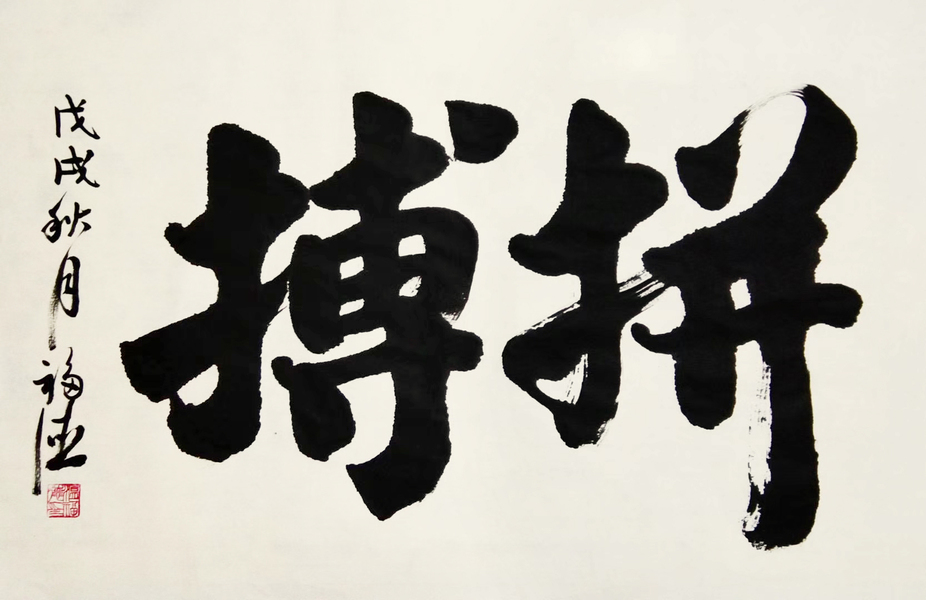 拼搏
戊戌秋月福德